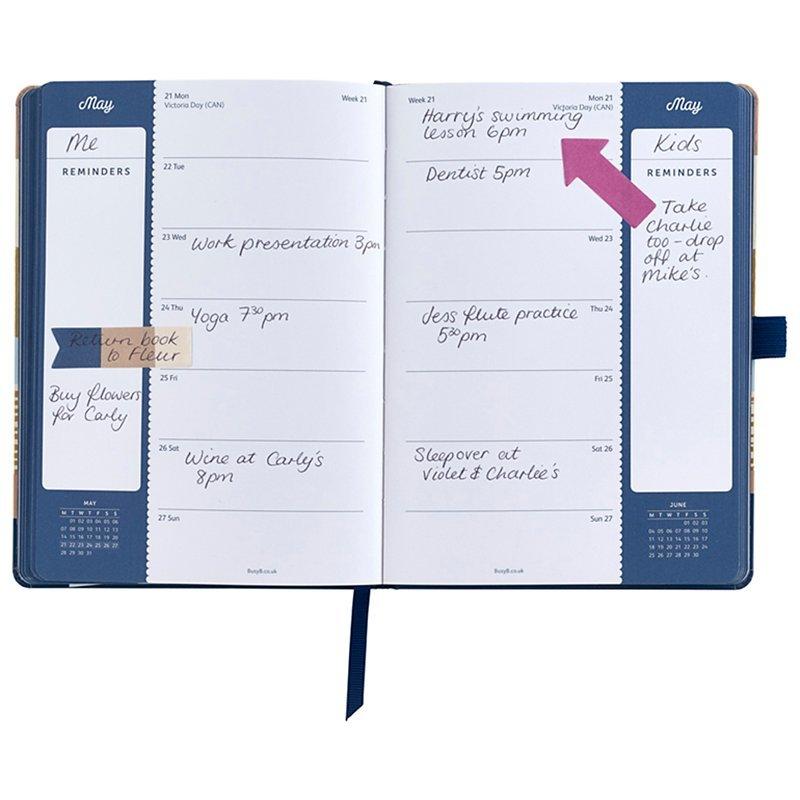 May
Me
REMINDERS
Return book
to Fleur
Buy flowers
for Carly
MAY
M T W T F S S
01 02 03 04 05 06
07 08 09 10 11 12 13
14 15 16 17 18 19 20
21 22 23 24 25 26 27
28 29 30 31
21 Mon
Victoria Day (CAN)
Week 21
22 Tue
23 Wed
Work presentation 3pm
24 Thu
Yoga 7 30 pm
25 Fri
26 Sat
Wine at Carly's
8pm
27 Sun
BusyB.co.uk
Week 21
Mon 21
Victoria Day (CAN)
Harry's swimming
lesson 6pm
Dentist 5pm
Wed 23
Thu 24
Jess flute practice
5 30 pm
Fri 25
Sat 26
Sleepover at
Violet & Charlie's
Sun 27
BusyB.co.uk
May
Kids
REMINDERS
Take
Charlie
too - drop
off at
Mike's.
JUNE
M T W T F S S
01 02 03
04 05 06 07 08 09 10
11 12 13 14 15 16 17
18 19 20 21 22 23 24
25 26 27 28 29 30